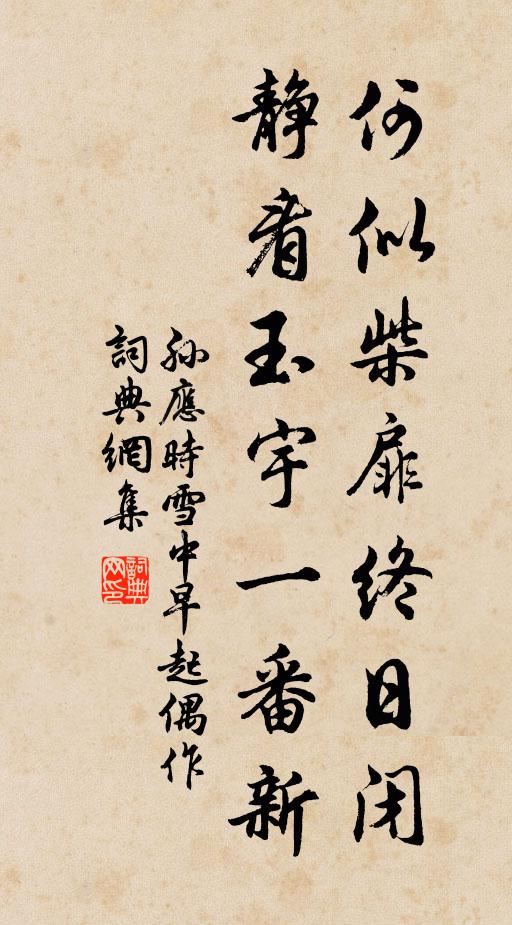 何似柴扉終日闭
静看玉宇一番新
孙應時雪中早起偶作
詞典網集
詞典网印